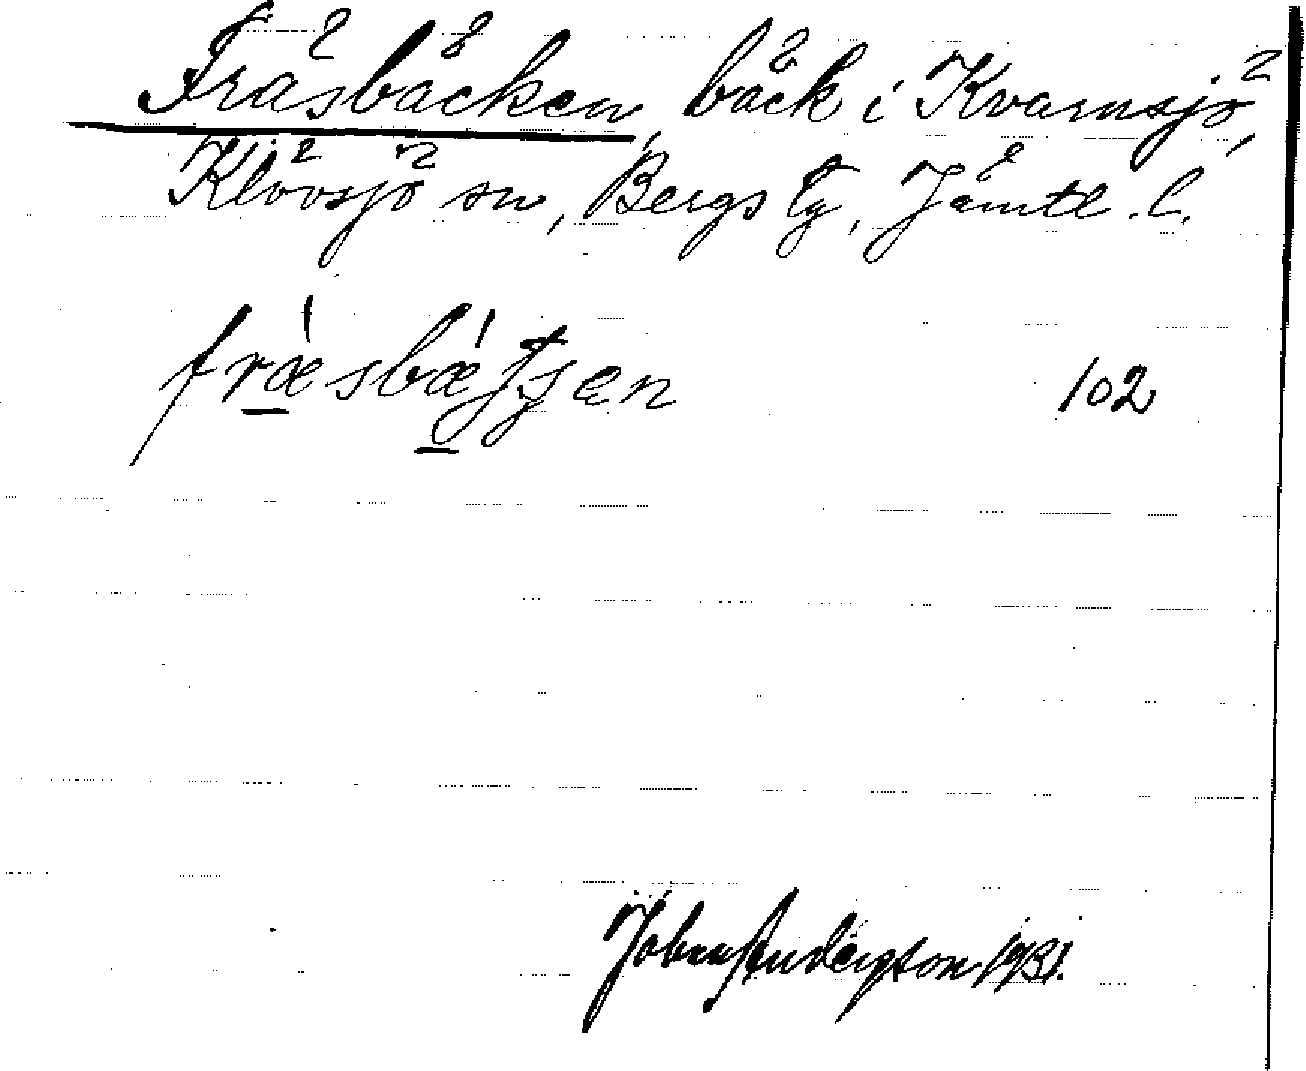 Fräsbäcken, bäck i Kvarnsjö,
Klövsjö sn, Bergs tg, Jämtl. l.
fræsbætʃæn 102
Johan Andersson 1931.